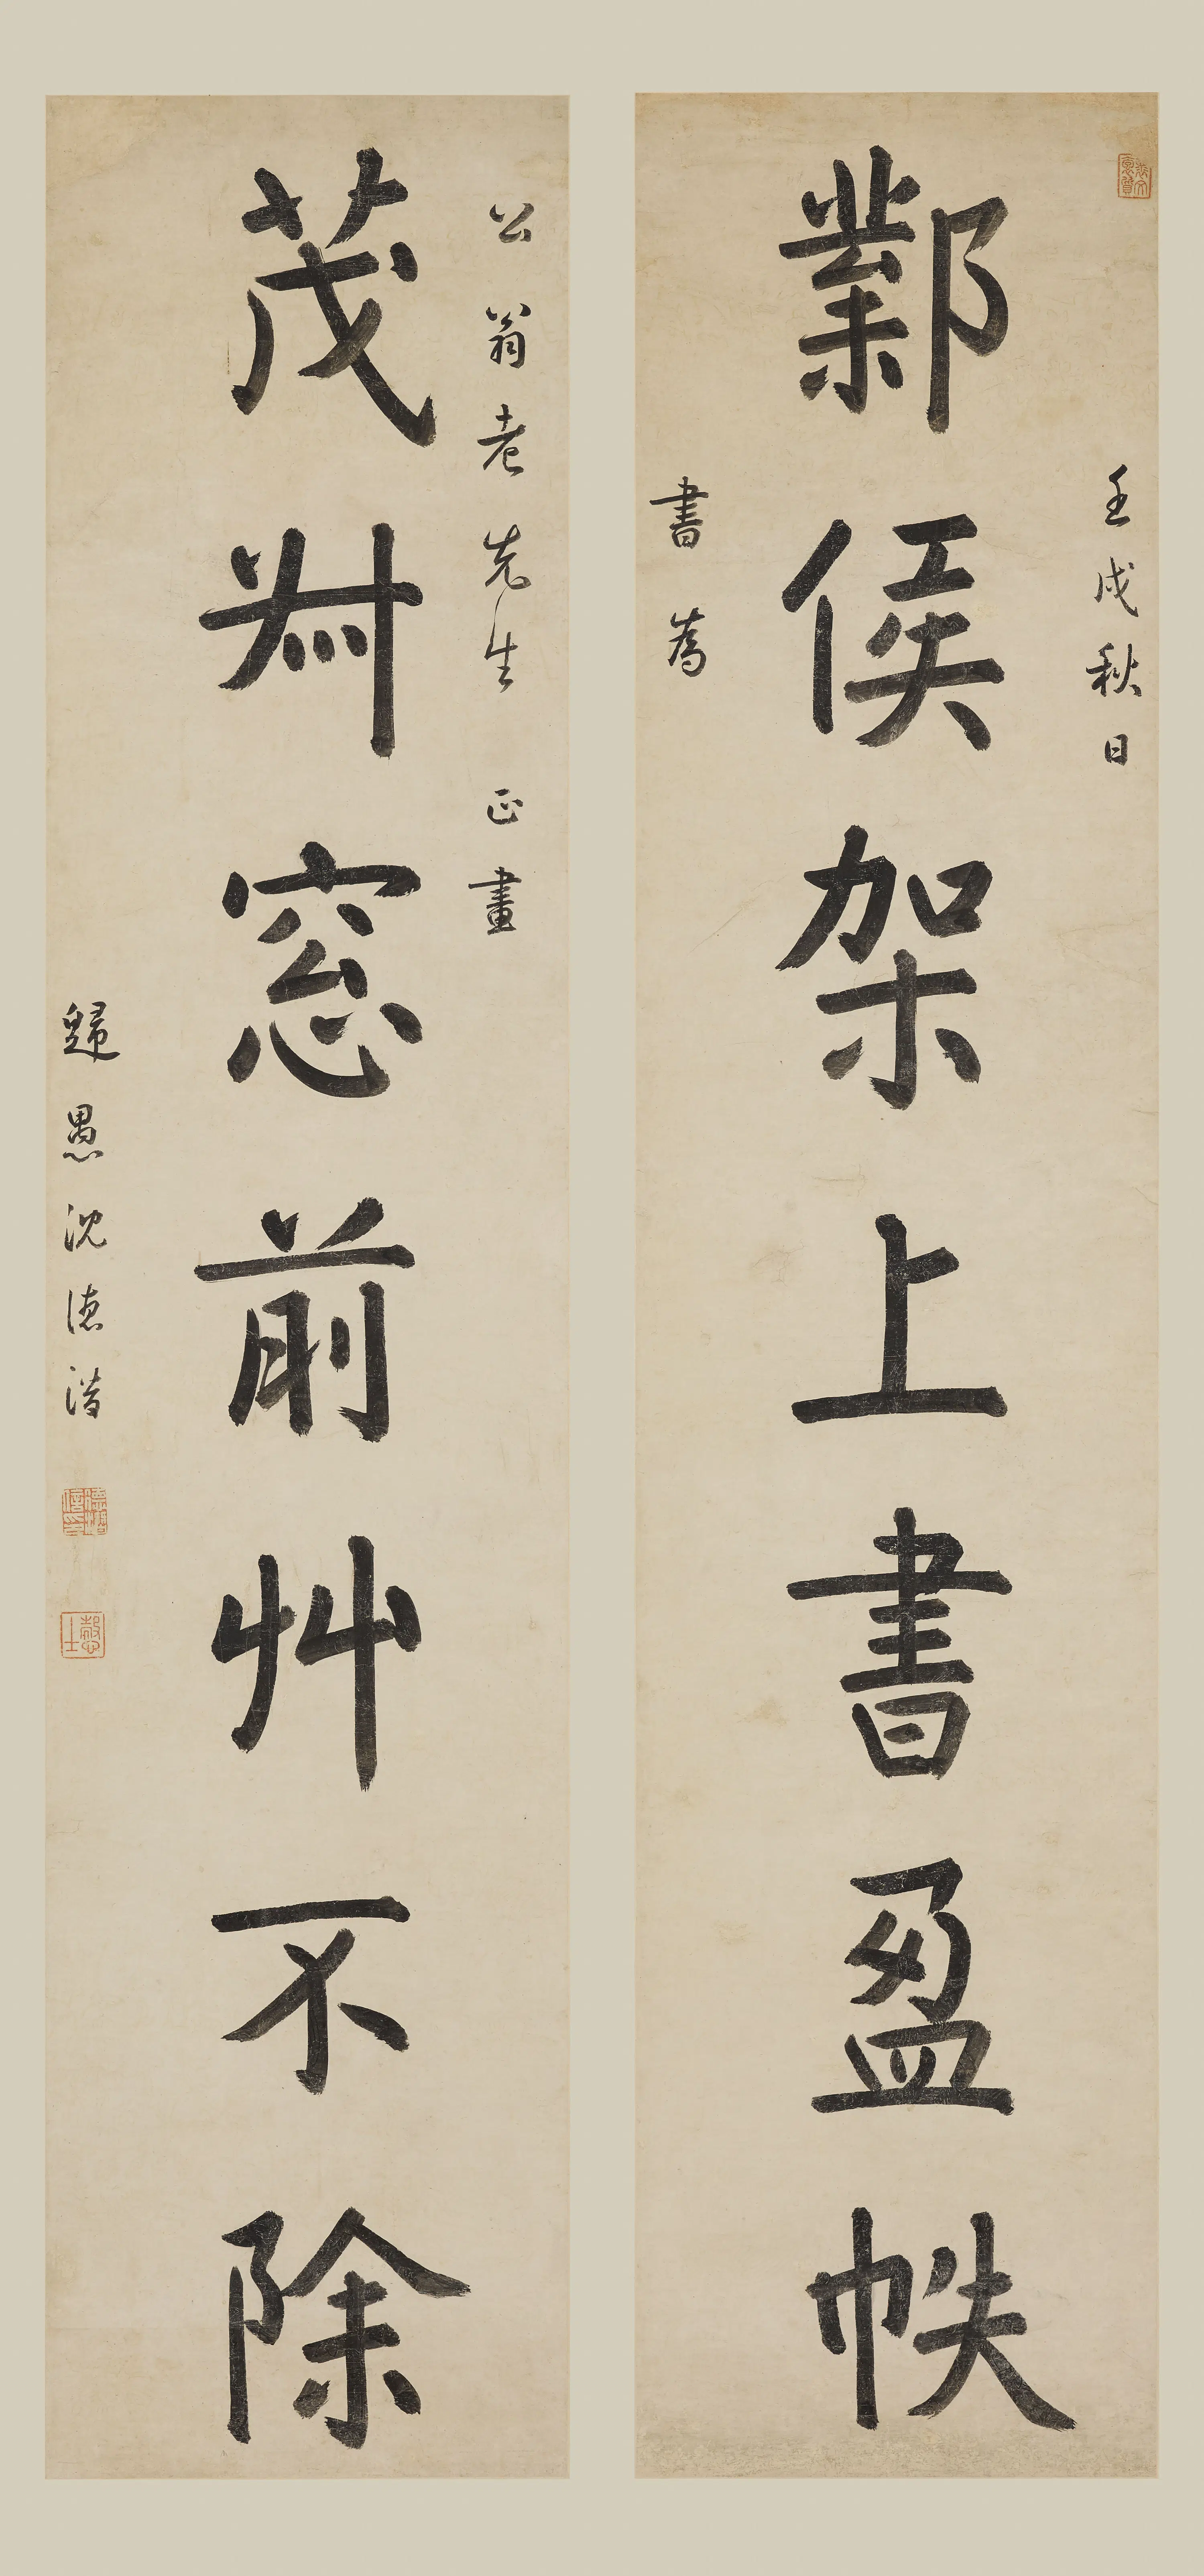 壬戌秋日
鄴侯架上書盈帙
書為
公翁老先生 正畫
茂叔窓前艸不除
歸愚沈德潛
德潛
慤士